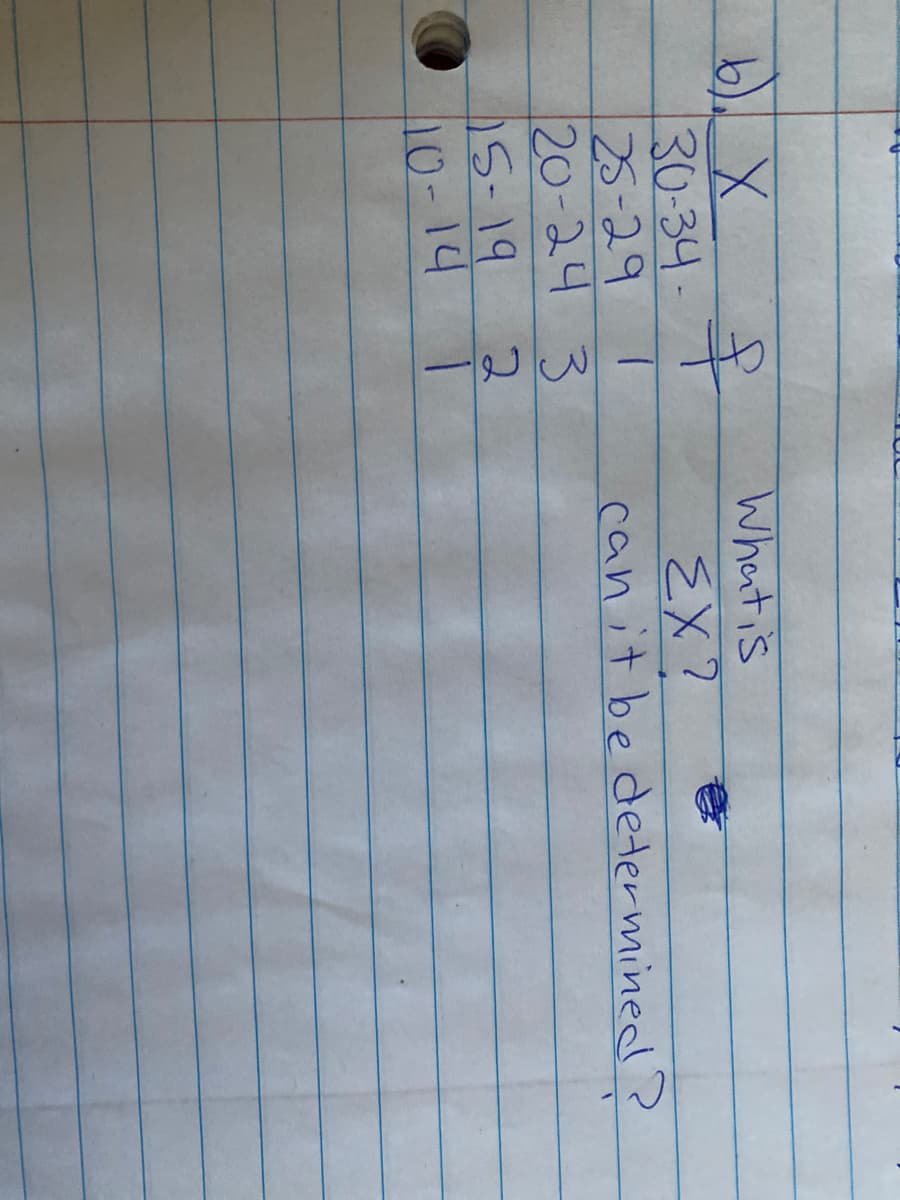 b). X f What is
30-34 - ΣX?
25-29 1 can it be determined?
20-24 3
15-19 2
10-14 1